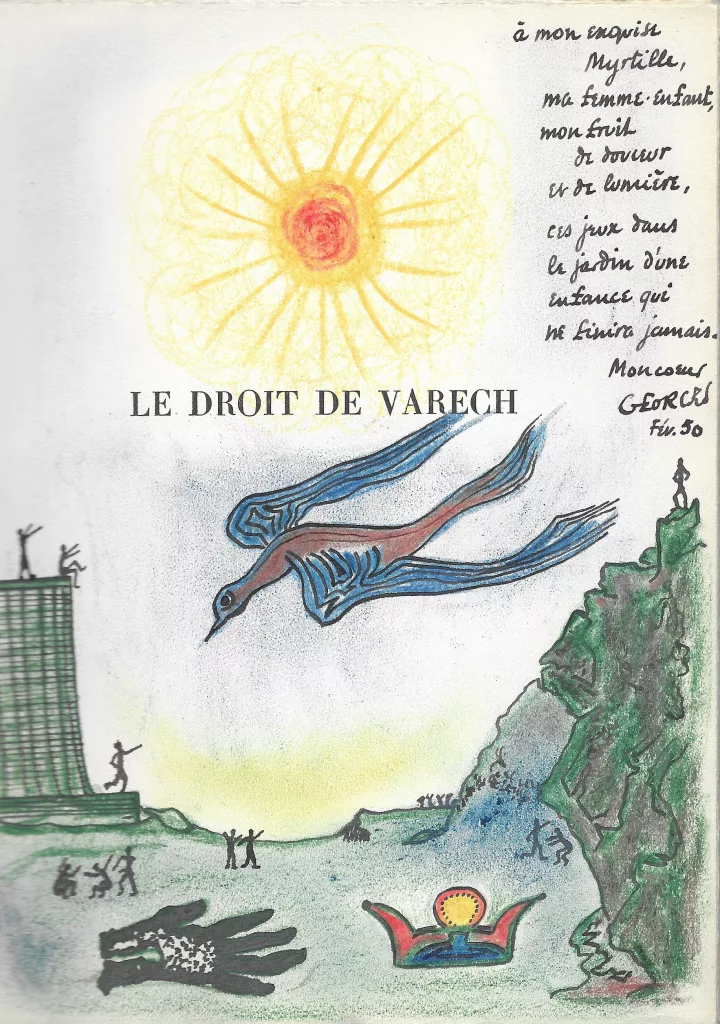 à mon exquise
Myrtille,
ma femme-enfant,
mon fruit
de douceur
et de lumière,
ces jeux dans
le jardin d'une
enfance qui
ne finira jamais.
Mon coeur
GEORGES
Fév. 50
LE DROIT DE VARECH